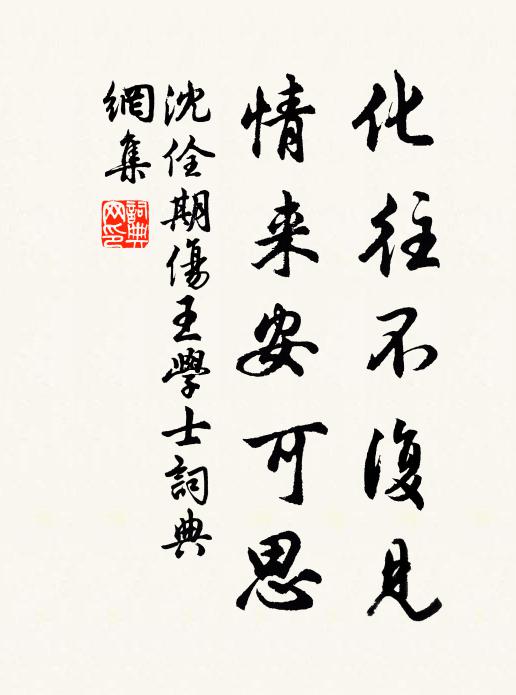 化往不復見
情来安可思
沈佺期傷王學士詞典
網集
詞典
网印